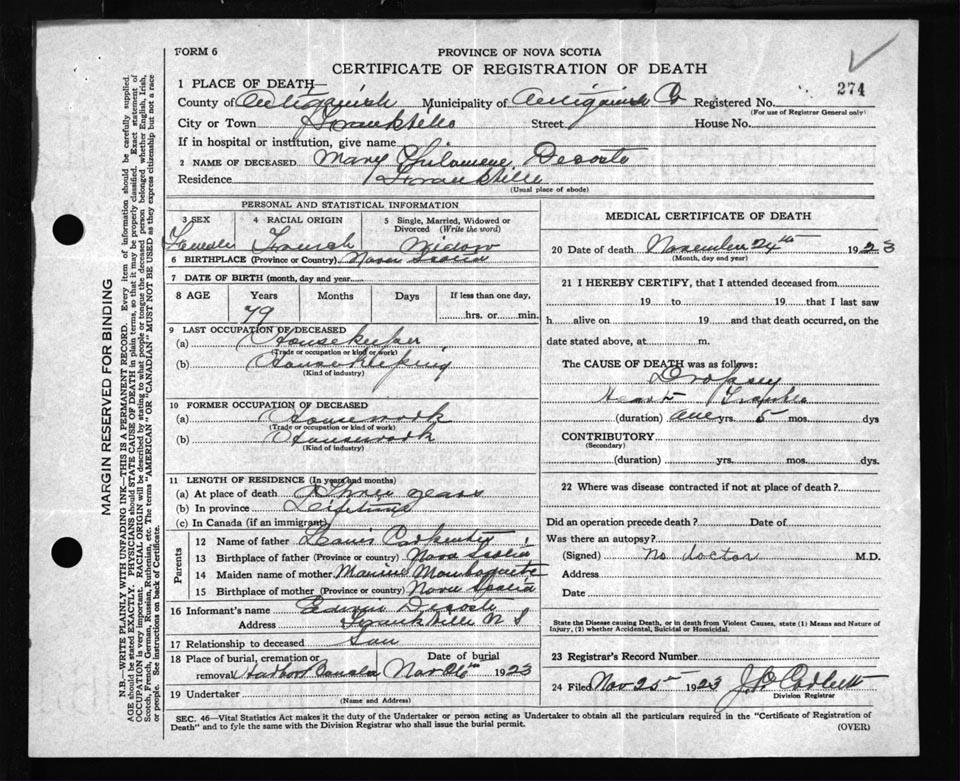 FORM 6
PROVINCE OF NOVA SCOTIA
CERTIFICATE OF REGISTRATION OF DEATH
274
1 PLACE OF DEATH—
County of Antigonish Municipality of Antigonish Co Registered No.
(For use of Registrar General only)
City or Town Frankville Street House No.
If in hospital or institution, give name
2 NAME OF DECEASED Mary Philomene Decoste
Residence Frankville
(Usual place of abode)
PERSONAL AND STATISTICAL INFORMATION
3 SEX 4 RACIAL ORIGIN 5 Single, Married, Widowed or Divorced (Write the word)
Female French Widow
6 BIRTHPLACE (Province or Country) Nova Scotia
7 DATE OF BIRTH (month, day and year)
8 AGE Years Months Days If less than one day,
79 hrs. or min.
9 LAST OCCUPATION OF DECEASED
(a) Housekeeper
(Trade or occupation or kind or work)
(b) Housekeeping
(Kind of industry)
10 FORMER OCCUPATION OF DECEASED
(a) Housework
(Trade or occupation or kind of work)
(b) Housework
(Kind of industry)
11 LENGTH OF RESIDENCE (In years and months)
(a) At place of death years
(b) In province Lifetime
(c) In Canada (if an immigrant)
Parents
12 Name of father
13 Birthplace of father (Province or country) Nova Scotia
14 Maiden name of mother
15 Birthplace of mother (Province or country) Nova Scotia
16 Informant's name Decoste
Address Frankville N S
17 Relationship to deceased Son
18 Place of burial, cremation or removal Date of burial
Nov 26th 1923
19 Undertaker
(Name and Address)
MEDICAL CERTIFICATE OF DEATH
20 Date of death November 24th 1923
(Month, day and year)
21 I HEREBY CERTIFY, that I attended deceased from
19 to 19 that I last saw
h alive on 19 and that death occurred, on the
date stated above, at m.
The CAUSE OF DEATH was as follows:
Dropsy
Heart Trouble
(duration) yrs. 5 mos. dys
CONTRIBUTORY
(Secondary)
(duration) yrs. mos. dys.
22 Where was disease contracted if not at place of death?
Did an operation precede death? Date of
Was there an autopsy?
(Signed) No doctor M.D.
Address
Date
State the Disease causing Death, or in death from Violent Causes, state (1) Means and Nature of
Injury, (2) whether Accidental, Suicidal or Homicidal.
23 Registrar's Record Number
24 Filed Nov 25th 1923 J Corbett
Division Registrar
SEC. 46—Vital Statistics Act makes it the duty of the Undertaker or person acting as Undertaker to obtain all the particulars required in the "Certificate of Registration of
Death" and to fyle the same with the Division Registrar who shall issue the burial permit.
(OVER)
MARGIN RESERVED FOR BINDING
N.B.—WRITE PLAINLY WITH UNFADING INK—THIS IS A PERMANENT RECORD. Every item of information should be carefully supplied.
AGE should be stated EXACTLY. PHYSICIANS should STATE CAUSE OF DEATH in plain terms, so that it may be properly classified. Exact statement of
OCCUPATION is very important. RACIAL ORIGIN will be described by stating to what people or tongue the deceased person belonged whether English, Irish,
Scotch, French, German, Russian, Ruthenian, etc. The terms "AMERICAN" OR "CANADIAN" MUST NOT BE USED as they express citizenship but not a race
or people. See instructions on back of Certificate.